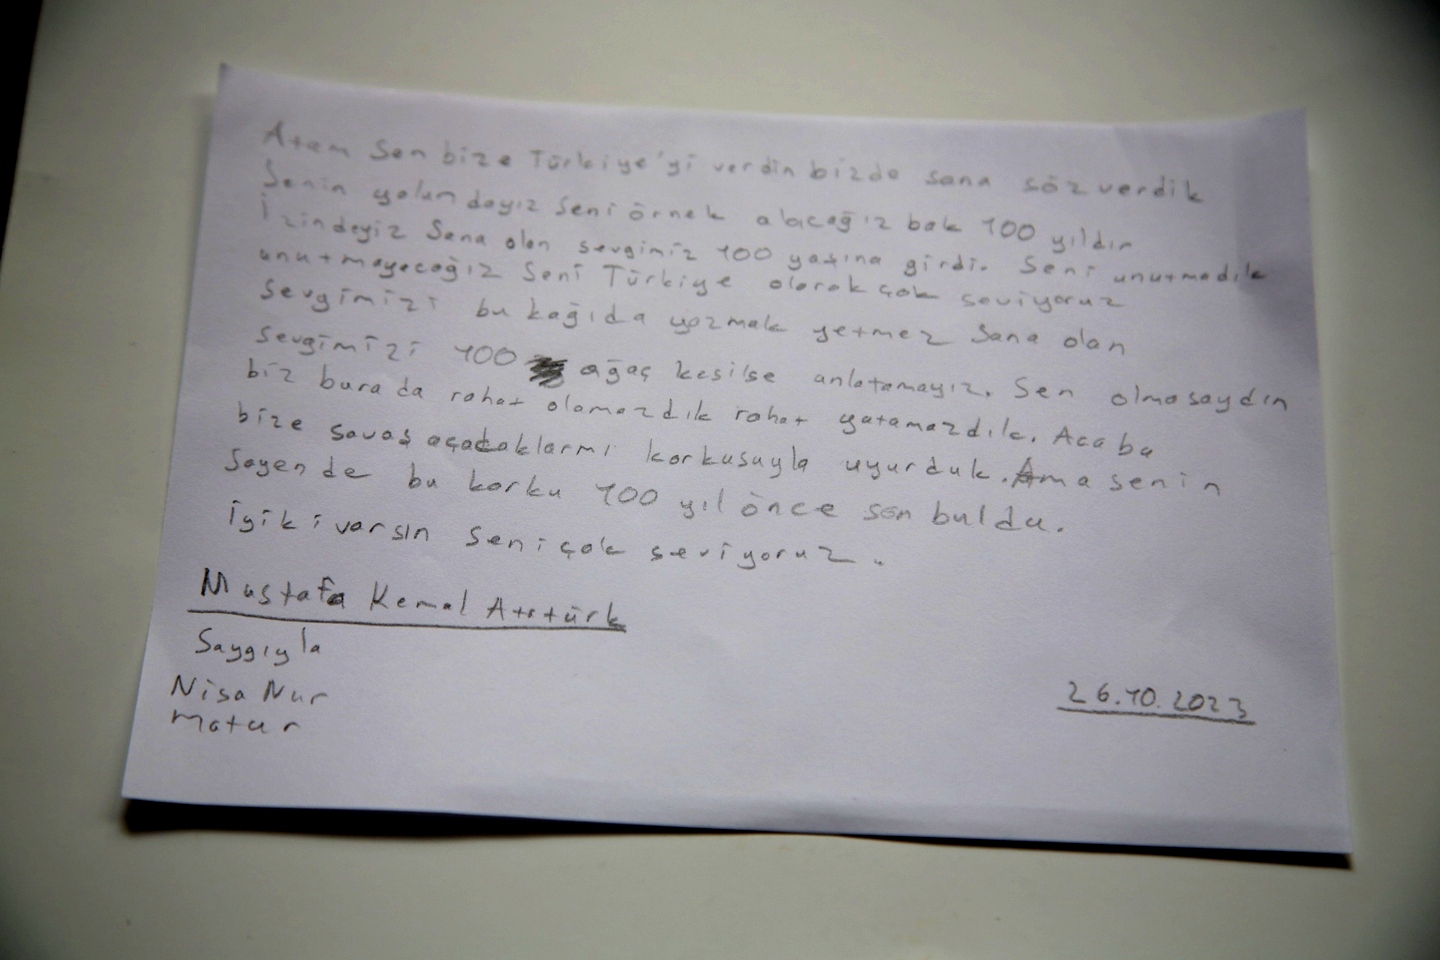 Atam Sen bize Türkiye'yi verdin bizde sana söz verdik
Senin yolundayız Seni örnek alıcağız bak 100 yıldır
İzindeyiz Sana olan sevgimiz 100 yaşına girdi. Seni unutmadık
unutmayacağız Seni Türkiye olarak çok seviyoruz
Sevgimizi bu kağıda yazmak yetmez Sana olan
Sevgimizi 100 ağaç kesilse anlatamayız. Sen olmasaydın
biz burada rahat olamazdık rahat yatamazdık. Acaba
bize savaş açacaklarmı korkusuyla uyurduk. Ama senin
Sayende bu korku 100 yıl önce son buldu.
İyiki varsın Seni çok seviyoruz.
Mustafa Kemal Atatürk
Saygıyla
Nisa Nur
Matur
26.10.2023